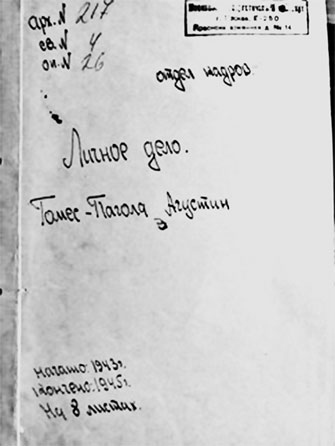 арх. N 217
св. N 4
оп. N 26
г. Москва, Е-250
д. № 14
отдел кадров.
Личное дело.
Гомес-Пагола Агустин
начато: 1943г.
окончено: 1945г.
На 8 листах.